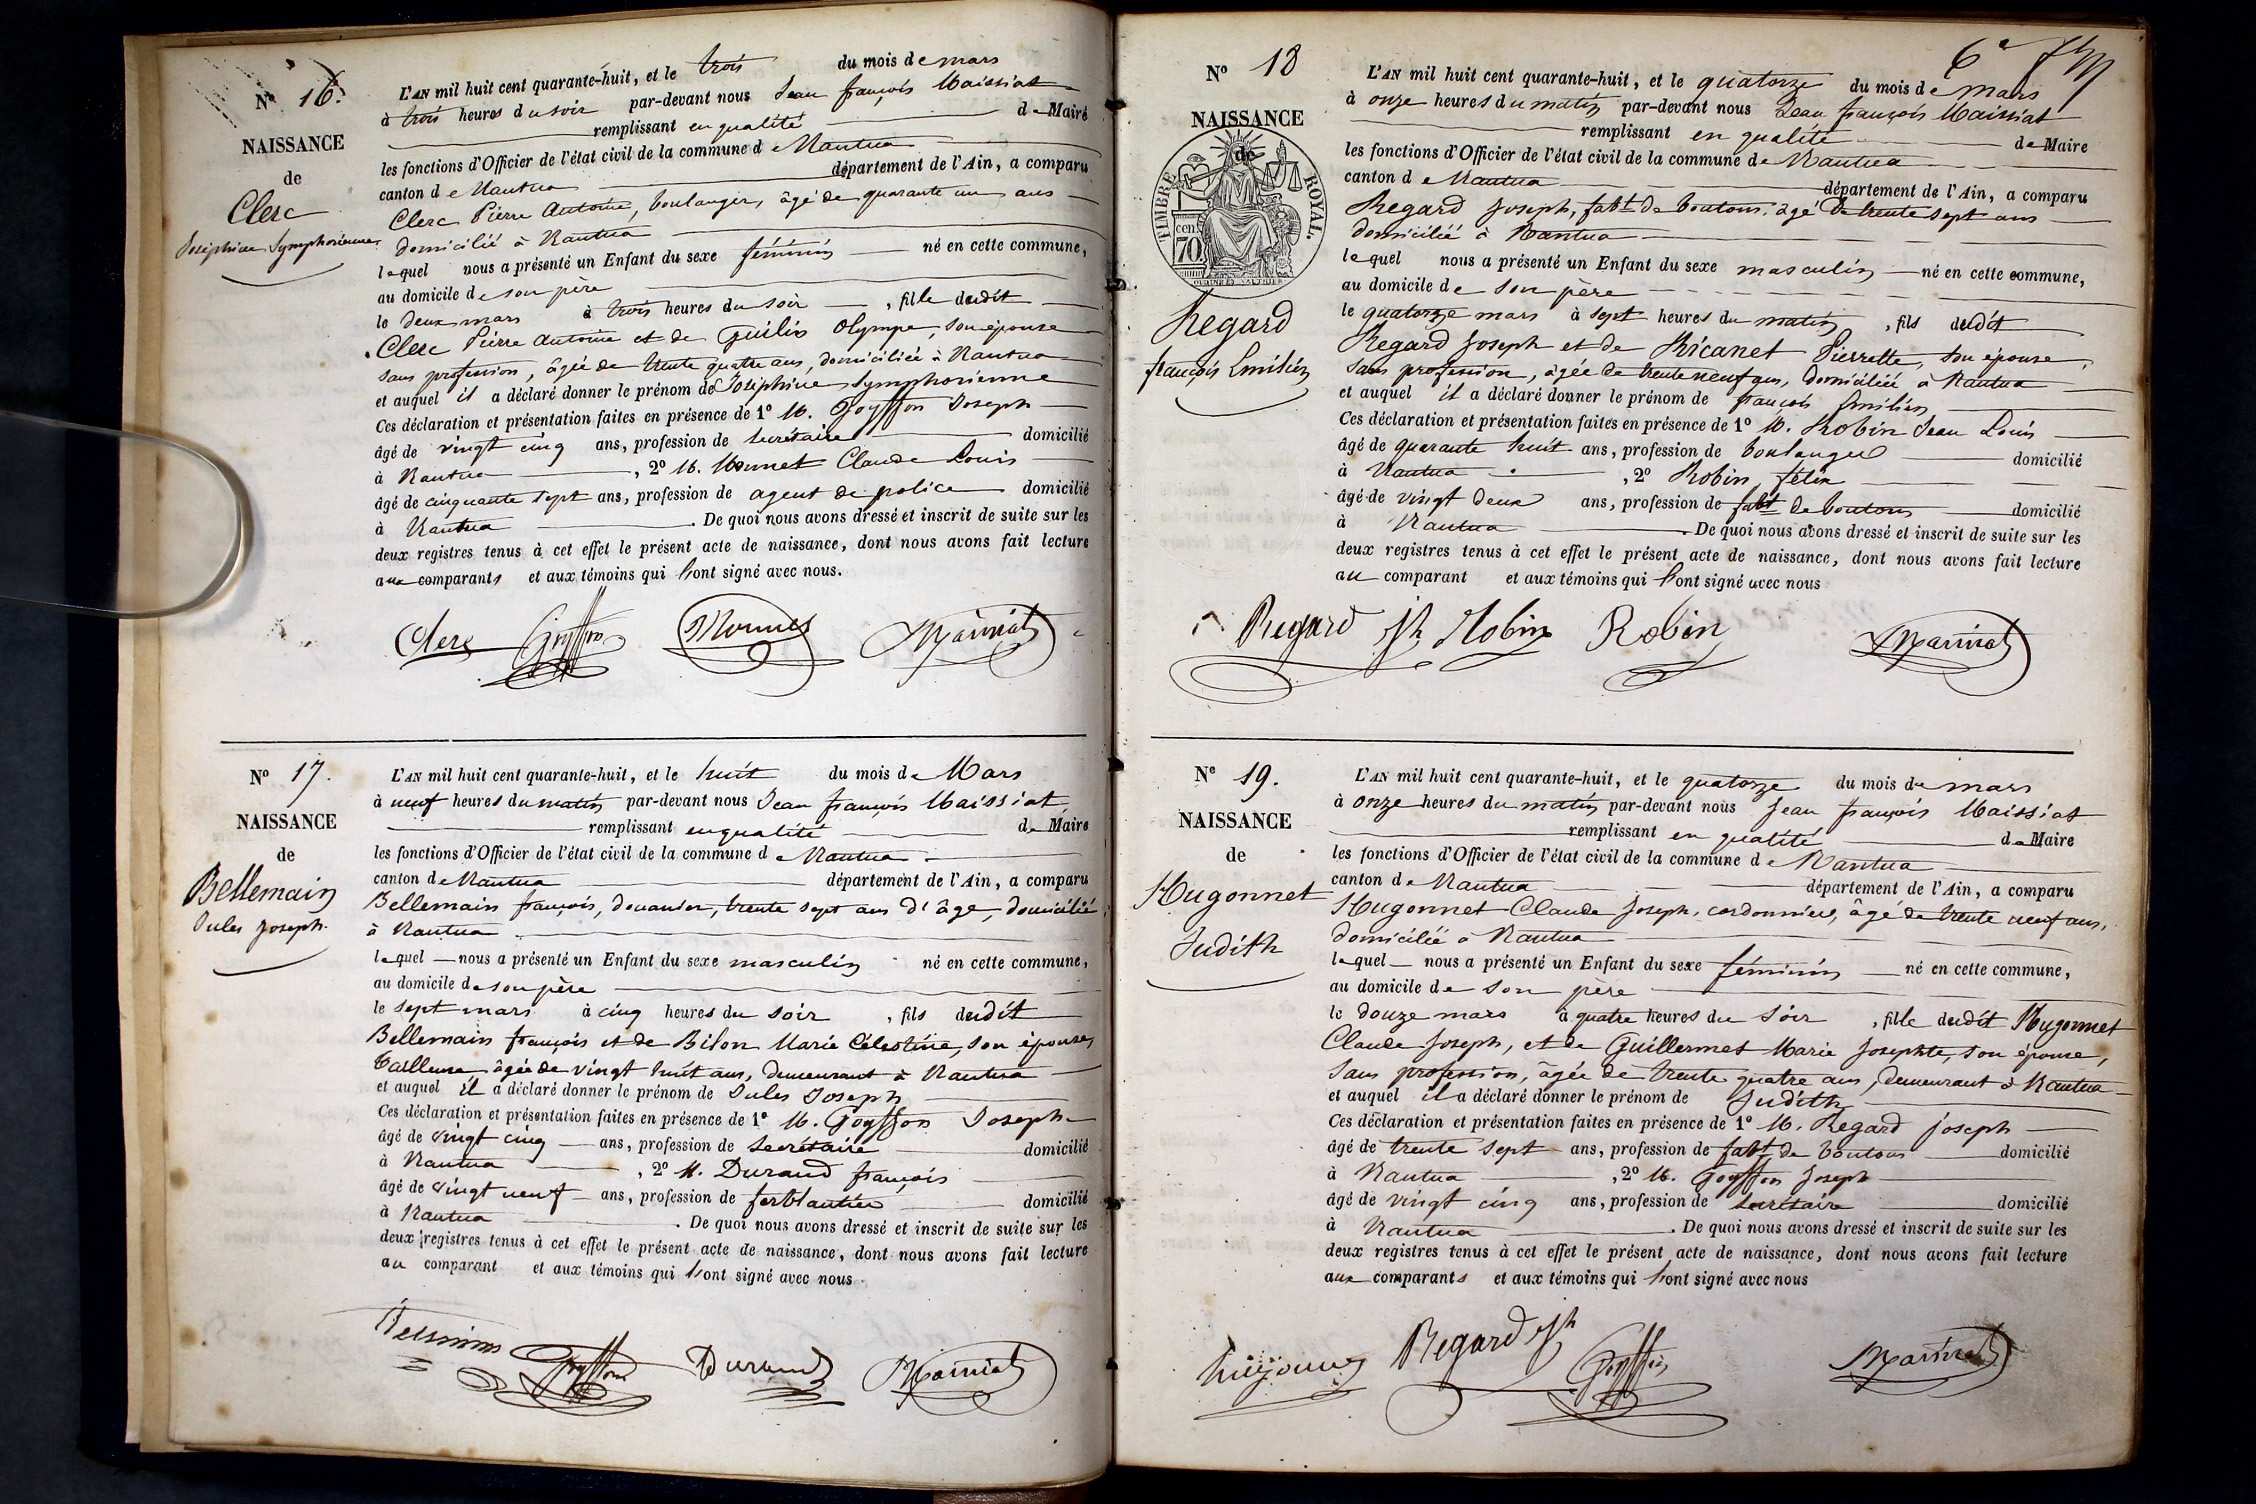 Nº 16.
NAISSANCE
de
Clerc
Joséphine Symphorienne
L'AN mil huit cent quarante-huit, et le trois du mois de mars
à trois heures du soir par-devant nous Jean françois Maissiat
remplissant en qualité de Maire
les fonctions d'Officier de l'état civil de la commune de Nantua
canton de Nantua département de l'Ain, a comparu
Clerc Pierre Antoine, boulanger, âgé de quarante un ans
domicilié à Nantua
lequel nous a présenté un Enfant du sexe féminin né en cette commune,
au domicile de son père
le deux mars à trois heures du soir, fille dudit
Clerc Pierre Antoine et de Guilin Olympe, son épouse
sans profession, âgée de trente quatre ans, domiciliée à Nantua
et auquel il a déclaré donner le prénom de Joséphine Symphorienne
Ces déclaration et présentation faites en présence de 1º M. Goyffon Joseph
âgé de vingt cinq ans, profession de secrétaire domicilié
à Nantua, 2º M. Monnet Claude Louis
âgé de cinquante sept ans, profession de agent de police domicilié
à Nantua. De quoi nous avons dressé et inscrit de suite sur les
deux registres tenus à cet effet le présent acte de naissance, dont nous avons fait lecture
aux comparants et aux témoins qui sont signé avec nous.
Clerc Goyffon Monnet Maissiat
Nº 17.
NAISSANCE
de
Bellemain
Jules Joseph.
L'AN mil huit cent quarante-huit, et le huit du mois de Mars
à neuf heures du matin par-devant nous Jean françois Maissiat
remplissant en qualité de Maire
les fonctions d'Officier de l'état civil de la commune de Nantua
canton de Nantua département de l'Ain, a comparu
Bellemain françois, douanier, trente sept ans d'âge, domicilié
à Nantua
lequel nous a présenté un Enfant du sexe masculin né en cette commune,
au domicile de son père
le sept mars à cinq heures du soir, fils dudit
Bellemain françois et de Bilon Marie Célestine, son épouse,
tailleuse âgée de vingt huit ans, demeurant à Nantua
et auquel il a déclaré donner le prénom de Jules Joseph
Ces déclaration et présentation faites en présence de 1º M. Goyffon Joseph
âgé de vingt cinq ans, profession de secrétaire domicilié
à Nantua, 2º M. Durand françois
âgé de vingt neuf ans, profession de ferblantier domicilié
à Nantua. De quoi nous avons dressé et inscrit de suite sur les
deux registres tenus à cet effet le présent acte de naissance, dont nous avons fait lecture
au comparant et aux témoins qui sont signé avec nous.
Goyffon Durand Maissiat
6e
Nº 18
NAISSANCE
de
TIMBRE ROYAL.
70 cen.
Regard
françois Emilien
L'AN mil huit cent quarante-huit, et le quatorze du mois de mars
à onze heures du matin par-devant nous Jean françois Maissiat
remplissant en qualité de Maire
les fonctions d'Officier de l'état civil de la commune de Nantua
canton de Nantua département de l'Ain, a comparu
Regard Joseph, fabt de boutons, âgé de trente sept ans
domicilié à Nantua
lequel nous a présenté un Enfant du sexe masculin né en cette commune,
au domicile de son père
le quatorze mars à sept heures du matin, fils dudit
Regard Joseph et de Ricanet Pierrette, son épouse,
sans profession, âgée de trente neuf ans, domiciliée à Nantua
et auquel il a déclaré donner le prénom de françois Emilien
Ces déclaration et présentation faites en présence de 1º M. Robin Jean Louis
âgé de quarante huit ans, profession de boulanger domicilié
à Nantua, 2º Robin félix
âgé de vingt deux ans, profession de fabt de boutons domicilié
à Nantua. De quoi nous avons dressé et inscrit de suite sur les
deux registres tenus à cet effet le présent acte de naissance, dont nous avons fait lecture
au comparant et aux témoins qui sont signé avec nous
Regard Jh Robin Robin Maissiat
Nº 19.
NAISSANCE
de
Hugonnet
Judith
L'AN mil huit cent quarante-huit, et le quatorze du mois de mars
à onze heures du matin par-devant nous Jean françois Maissiat
remplissant en qualité de Maire
les fonctions d'Officier de l'état civil de la commune de Nantua
canton de Nantua département de l'Ain, a comparu
Hugonnet Claude Joseph, cordonnier, âgé de trente neuf ans,
domicilié à Nantua
lequel nous a présenté un Enfant du sexe féminin né en cette commune,
au domicile de son père
le douze mars à quatre heures du soir, fille dudit Hugonnet
Claude Joseph, et de Guillermet Marie Josephte, son épouse,
sans profession, âgée de trente quatre ans, demeurant à Nantua
et auquel il a déclaré donner le prénom de Judith
Ces déclaration et présentation faites en présence de 1º M. Regard joseph
âgé de trente sept ans, profession de fabt de boutons domicilié
à Nantua, 2º M. Goyffon Joseph
âgé de vingt cinq ans, profession de secrétaire domicilié
à Nantua. De quoi nous avons dressé et inscrit de suite sur les
deux registres tenus à cet effet le présent acte de naissance, dont nous avons fait lecture
aux comparants et aux témoins qui sont signé avec nous
Regard Jh Goyffon Maissiat